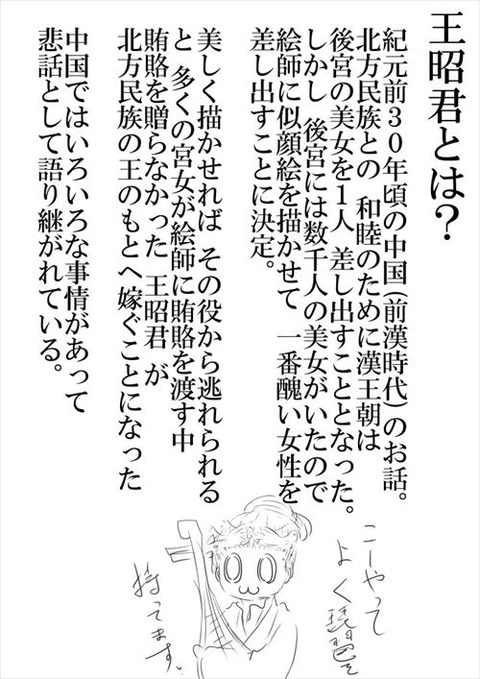 王昭君とは？
紀元前３０年頃の中国（前漢時代）のお話。
北方民族との　和睦のために漢王朝は
後宮の美女を１人　差し出すこととなった。
しかし　後宮には数千人の美女がいたので
絵師に似顔絵を描かせて　一番醜い女性を
差し出すことに決定。
美しく描かせれば　その役から逃れられる
と　多くの宮女が絵師に賄賂を渡す中
賄賂を贈らなかった　王昭君　が
北方民族の王のもとへ嫁ぐことになった
中国ではいろいろな事情があって
悲話として語り継がれている。
こーやって
よく琵琶を
持ってます。